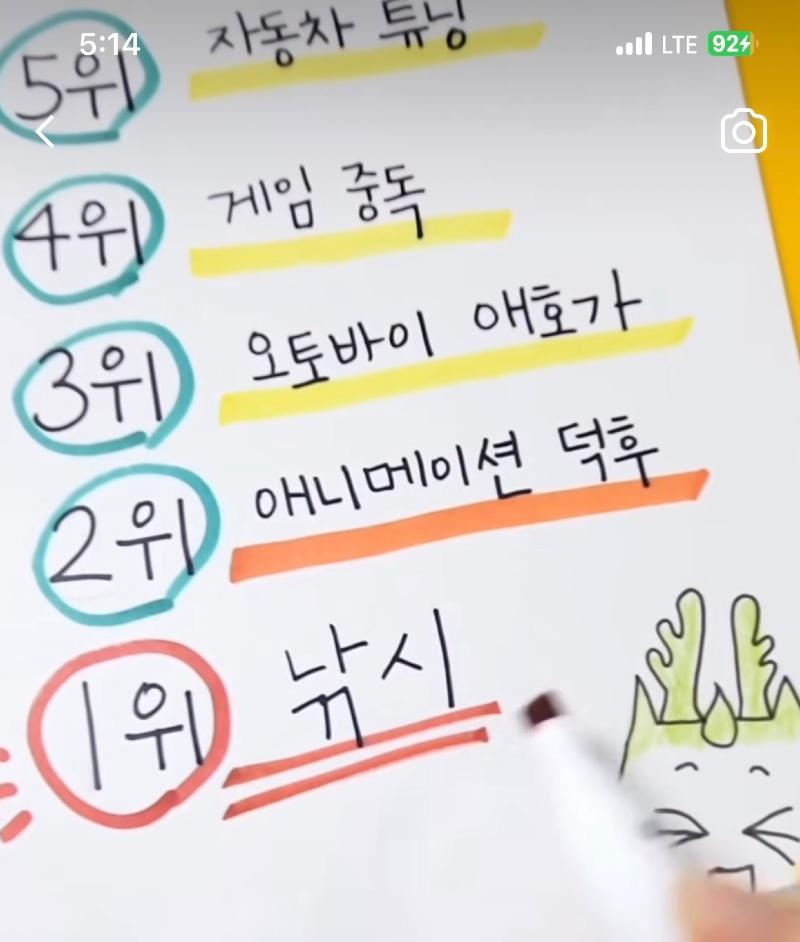 5:14
LTE 92
5위 자동차 튜닝
4위 게임 중독
3위 오토바이 애호가
2위 애니메이션 덕후
1위 낚시